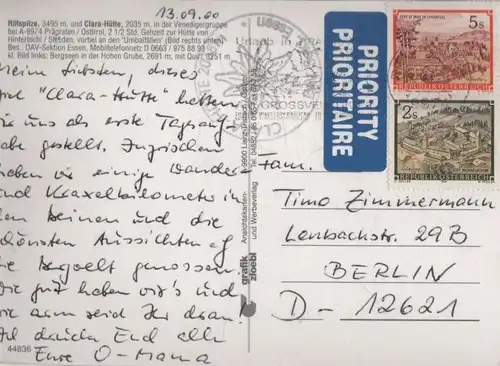 13.09.00
Rötspitze, 3495 m, und Clara-Hütte, 2035 m, in der Venedigergruppe
bei A-9974 Prägraten / Osttirol, 2 1/2 Std. Gehzeit zur Hütte von
Hinterbichl / Ströden, vorbei an den "Umbalfällen" (Bild rechts unten)
Bes.: ÖAV-Sektion Essen, Mobiltelefonnetz: D 0663 / 975 88 93
kl. Bild links: Bergseen in der Hohen Grube, 2691 m, mit Quirl, 3251 m
Meine Liebsten, dieses
"Clara-Hütte" hatten
uns als erste Tagsauf-
gabe gestellt. Inzwischen
haben wir einige Wander-
und Kraxelkilometer in
den Beinen und die
schönsten Aussichten auf
die Bergwelt genossen.
gut haben wir's und
wie arm seid Ihr dran!
drückt Euch alle
Eure O-Mama
44836
grafik zloebl
Ansichtskarten-
und Werbeverlag
PRIORITY
PRIORITAIRE
5s
REPUBLIK ÖSTERREICH
2s
REPUBLIK ÖSTERREICH
Urlaub in
GROSSVE
Fam.
Timo Zimmermann
Lenbachstr. 29B
BERLIN
D-12621